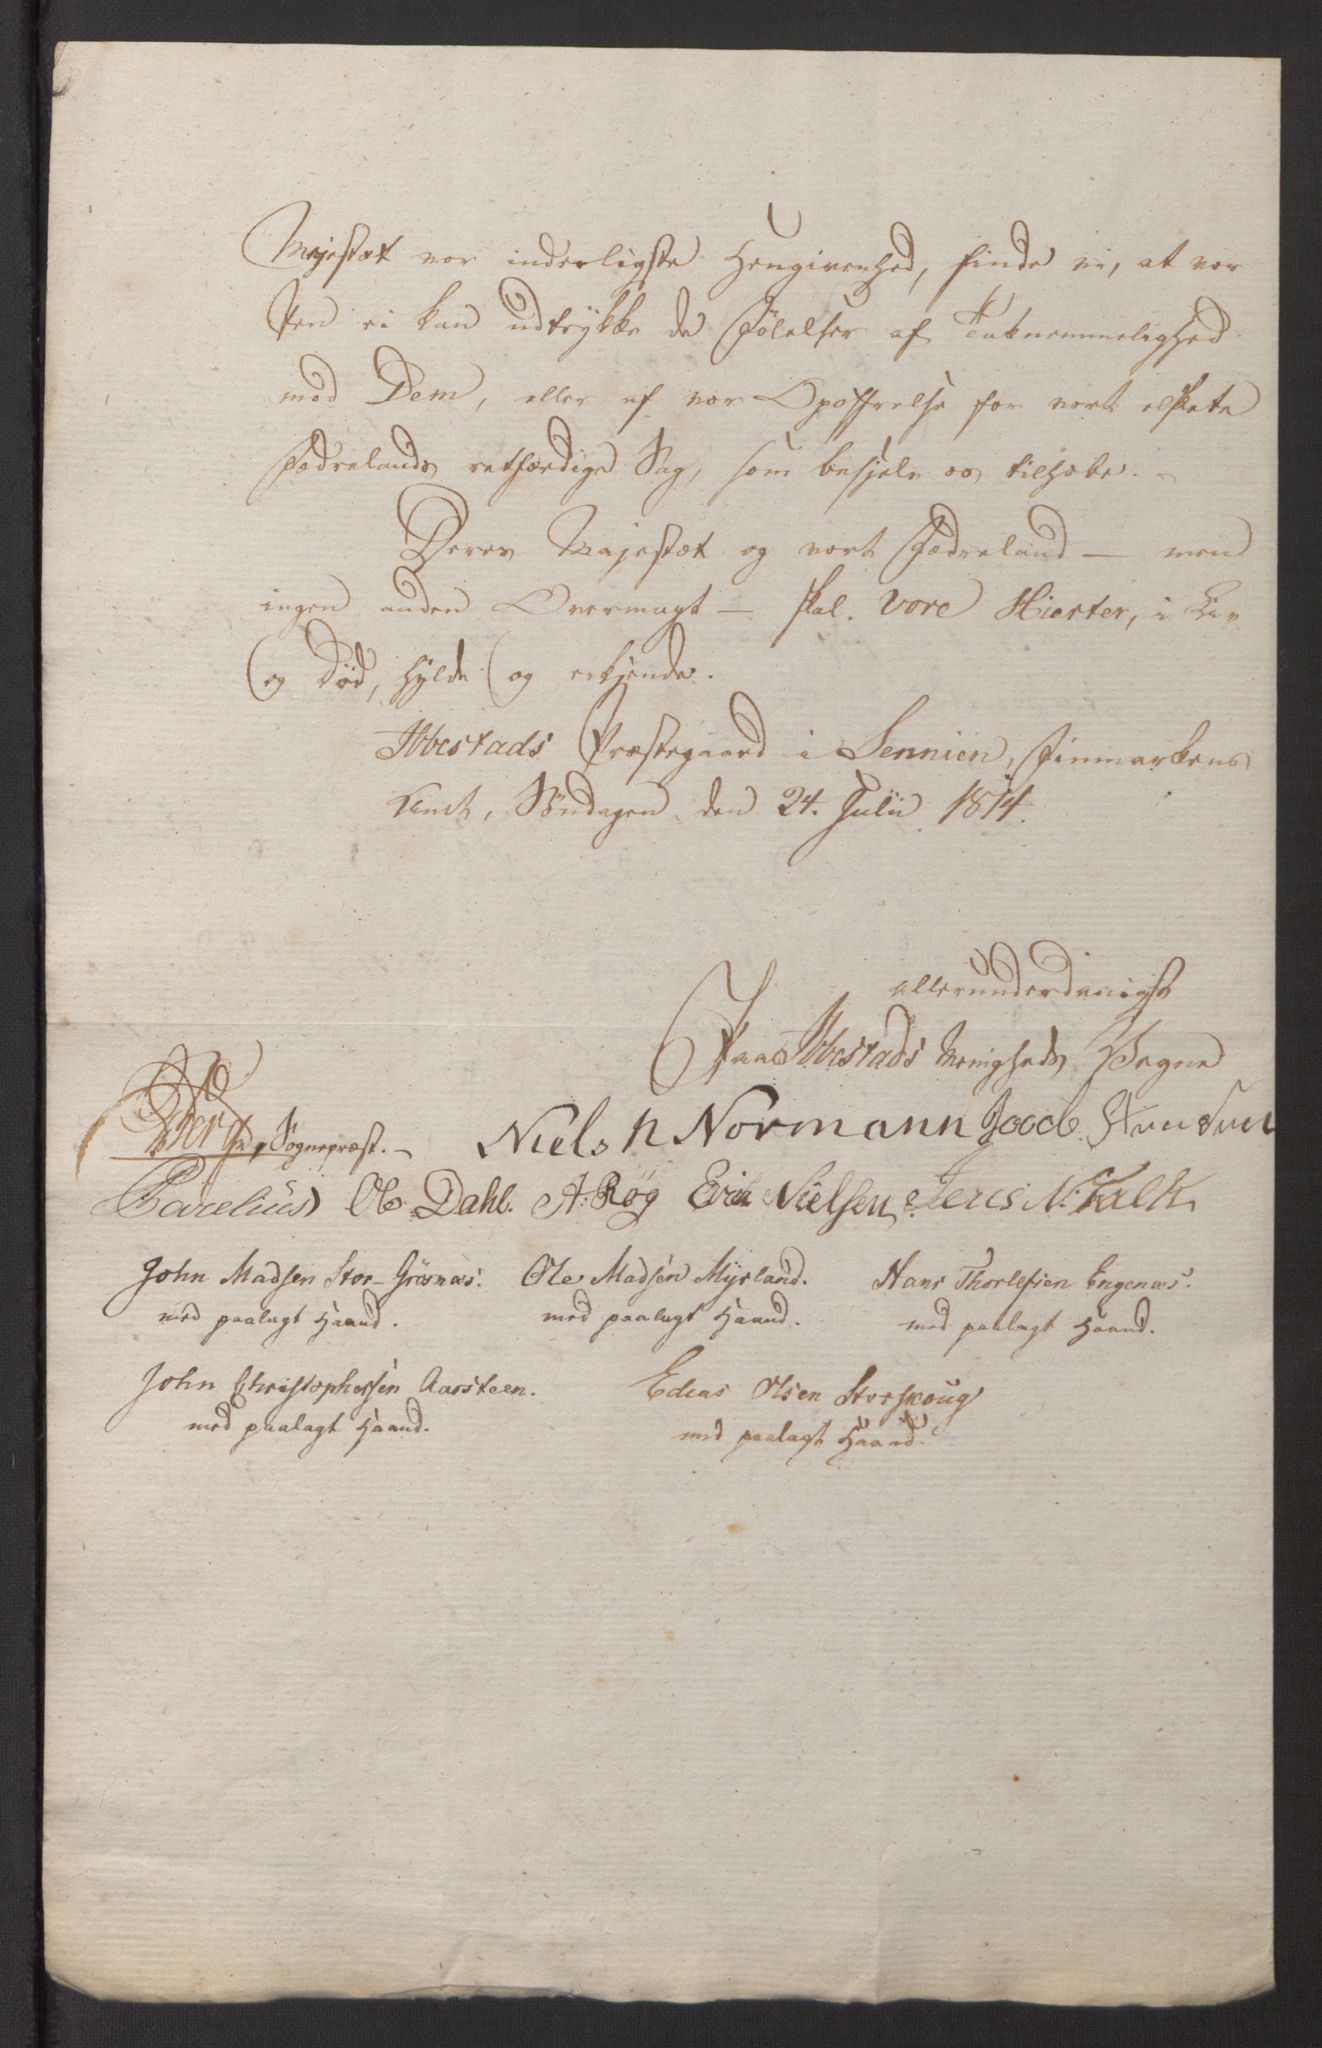 Majestæt vor inderligste Hengivenhed, finde vi, at vor
Pen ei kan udtrykke de Følelser af Taknemmelighed
mod Dem, eller af vor Opoffrelse for vort elskete
Fædrelands retfærdige Sag, som besjele os tilhobe. -
Deres Majestæt og vort Fædreland — men
ingen anden Overmagt — skal vore Hierter, i Liv
og Død, hylde og erkjende.
Ibbestads Præstegaard i Sennien, Finmarkens
Amt, Søndagen den 24. Julii 1814.
allerunderdanigst
Paa Ibbestads Menigheds Vegne
Sognepræst. - Niels N Normann Jacob
Parelius Ole Dahl. A. Røg Erik Nielsen Jens N. Falk
John Madsen Stor-Grøsnæs. Ole Madsen Myrland. Hans Thorlefsen Engenæs.
med paalagt Haand. med paalagt Haand. med paalagt Haand.
John Christophersen Aarsteen. Edias Olsen Storskoug
med paalagt Haand. med paalagt Haand.